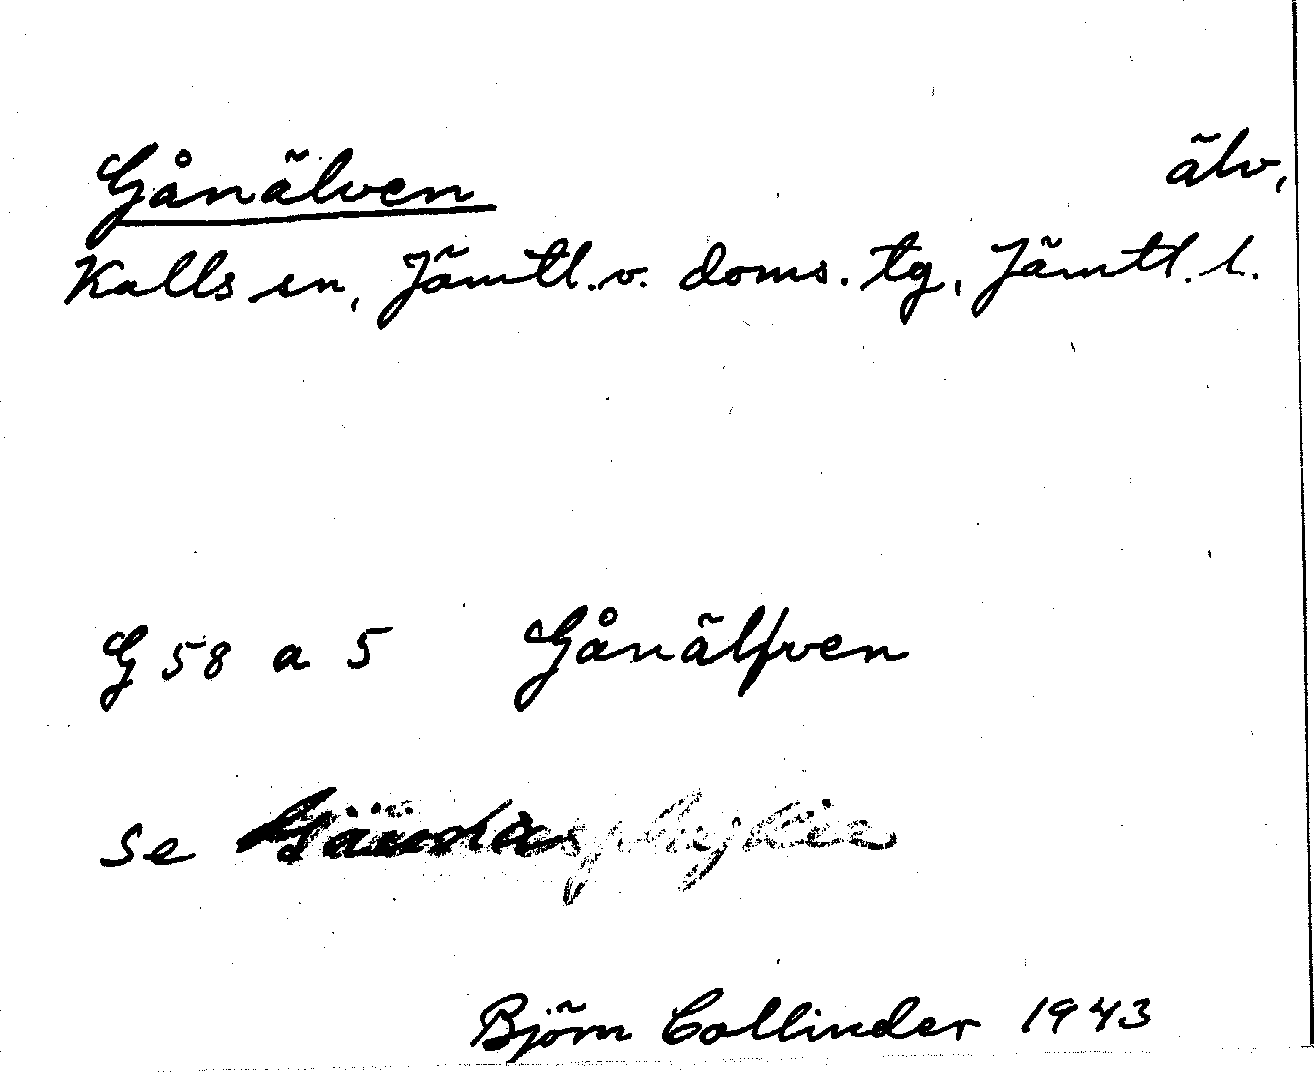 Gånälven älv,
Kalls sn, Jämtl. v. doms. tg, Jämtl. l.
G 58 a 5 Gånälfven
se
Björn Collinder 1943